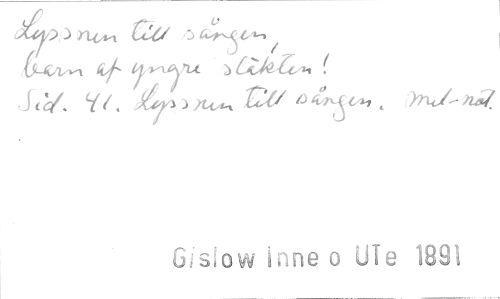 Lyssnen till sången,
barn af yngre släkten!
Sid. 41. Lyssnen till sången. Mel-not.
Gislow Inne o UTe 1891